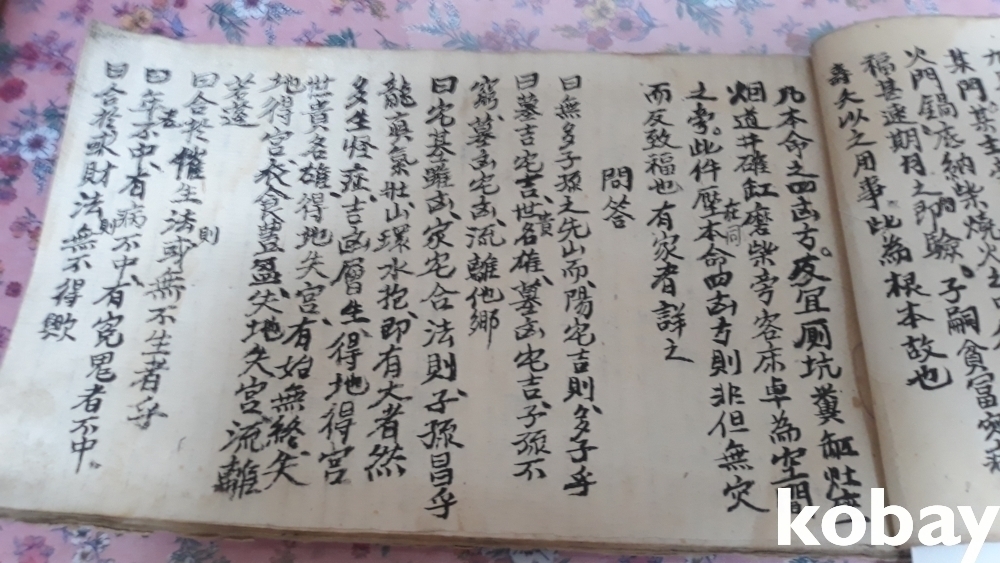 某門某
火門鍋底納柴燒火
福甚速期月之內卽驗子嗣貧富灾
壽夭以之用事此為根本故也
凡本命之四凶方反宜厠坑糞缸灶座
烟道井碓缸磨柴旁客床卓為空間
之旁此件壓在本命四凶方同則非但無灾
而反致福也有家者詳之
問答
曰無多子孫之先山而陽宅吉則多子乎
曰墓吉宅吉世貴名確墓凶宅吉子孫不
窮墓凶宅凶流離他鄉
曰宅基雖凶家宅合法則子孫昌乎
龍眞氣壯山環水抱卽有大者然
多生怪症吉凶層生得地得宮
世貴名雄得地失宮有始無終失
地得宮衣食豊盈失地失宮流離
若邊
曰合於催生法則或無不生者乎
曰年不中有病不中有寃鬼者不中
曰合於財法則無不得歟
kobay